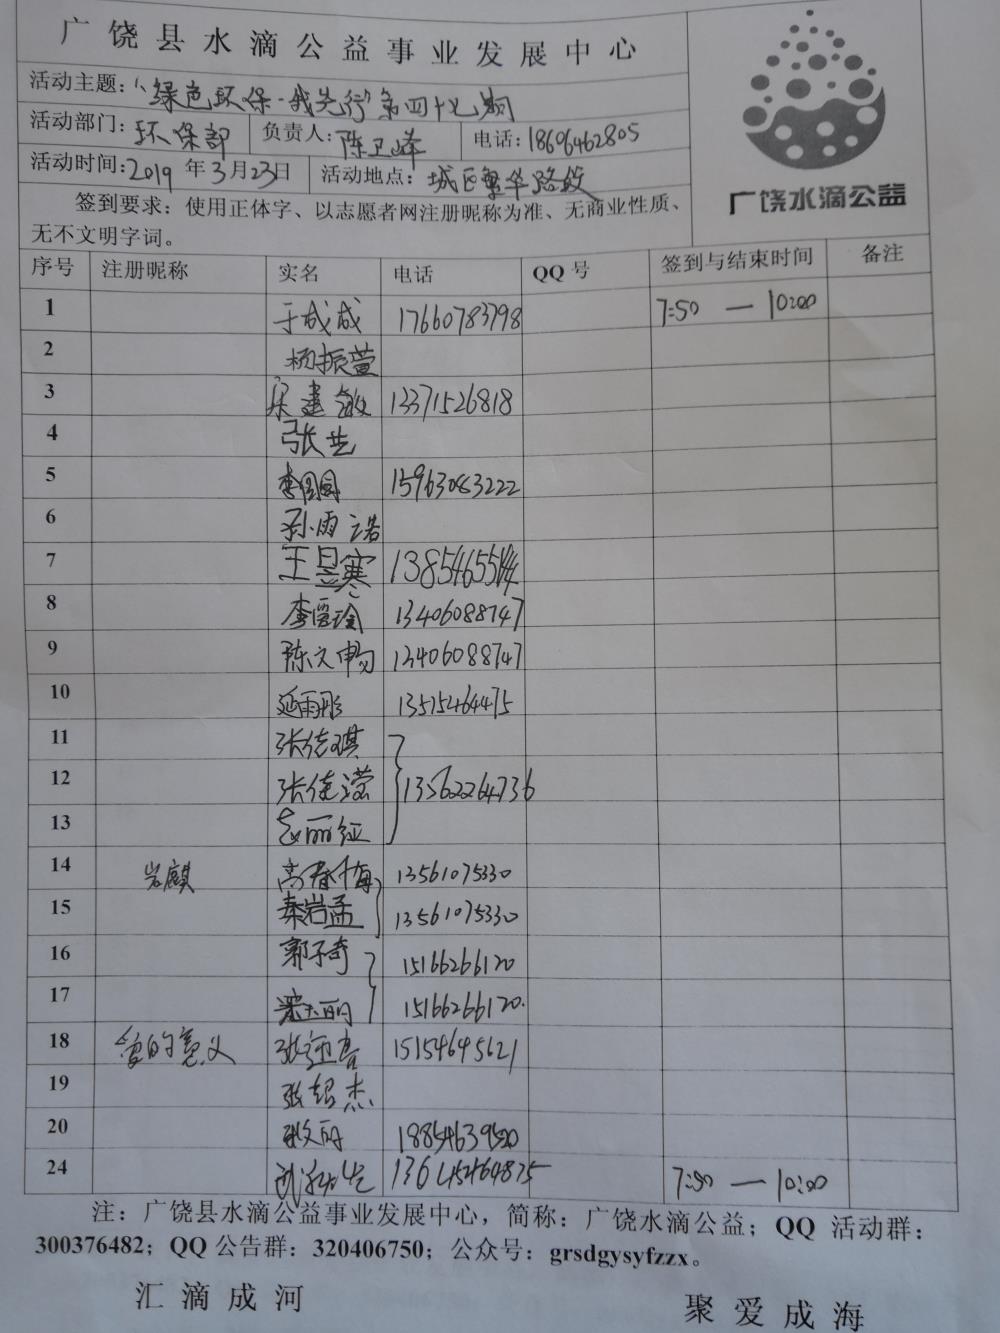 广饶县水滴公益事业发展中心
活动主题：“绿色环保·我先行”第四十七期
活动部门：环保部 负责人：陈卫峰 电话：18606462805
活动时间：2019年3月23日 活动地点：城区繁华路段
广饶水滴公益
签到要求：使用正体字、以志愿者网注册昵称为准、无商业性质、
无不文明字词。
序号 注册昵称 实名 电话 QQ号 签到与结束时间 备注
1 于成成 17660783798 7:50 — 10:00
2 杨振萱
3 梁建敏 13371526818
4 张芸
5 李圆圆 15963083222
6 孙雨诺
7 王昱寒
8 李爱瑜 13406088747
9 陈文畅 13406088747
10 延雨彤 13515464475
11 张佳琪
12 张佳滢 13562264736
13 丽红
14 岩麒 高春梅 13561075330
15 秦岩孟 13561075330
16 郭子奇 15166266120
17 梁玉丽 15166266120.
18 爱的意义 张迎春 15154645621
19 张超杰
20 18854639520
24 7:50 — 10:00
注：广饶县水滴公益事业发展中心，简称：广饶水滴公益；QQ 活动群：
300376482；QQ公告群：320406750；公众号：grsdgysyfzzx。
汇滴成河 聚爱成海